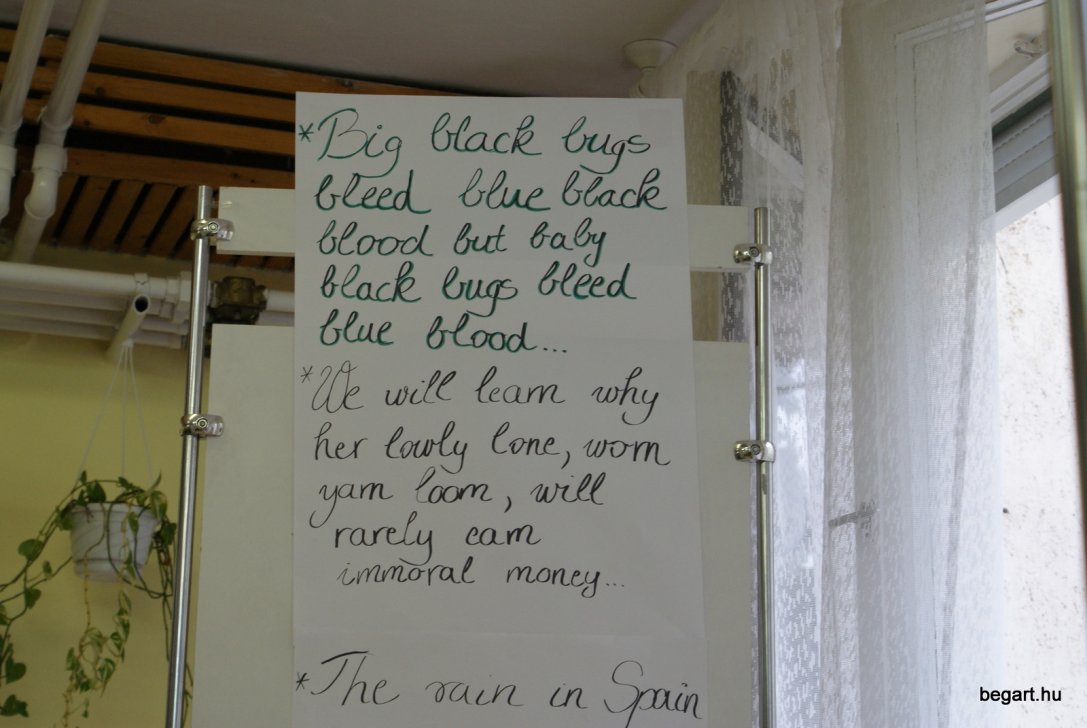 *Big black bugs
bleed blue black
blood but baby
black bugs bleed
blue blood...
*We will learn why
her lowly lone, worn
yarn loom, will
rarely earn
immoral money...
*The rain in Spain
begart.hu